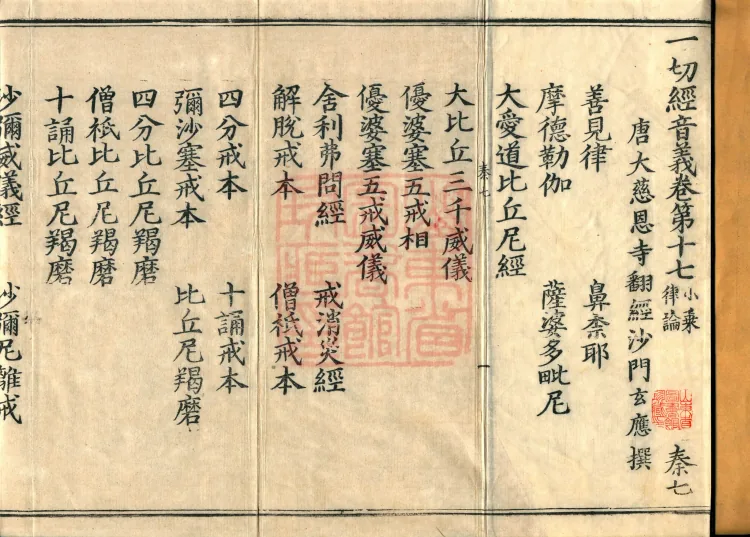 一切經音義卷第十七 小乘律論 秦七
唐大慈恩寺翻經沙門玄應撰
善見律 鼻柰耶
摩德勒伽 薩婆多毗尼
大愛道比丘尼經
秦七 一
大比丘三千威儀
優婆塞五戒相
優婆塞五戒威儀
舍利弗問經 戒消災經
解脫戒本 僧祇戒本
四分戒本 十誦戒本
彌沙塞戒本 比丘尼羯磨
四分比丘尼羯磨
僧祇比丘尼羯磨
十誦比丘尼羯磨
沙彌威儀經 沙彌尼離戒